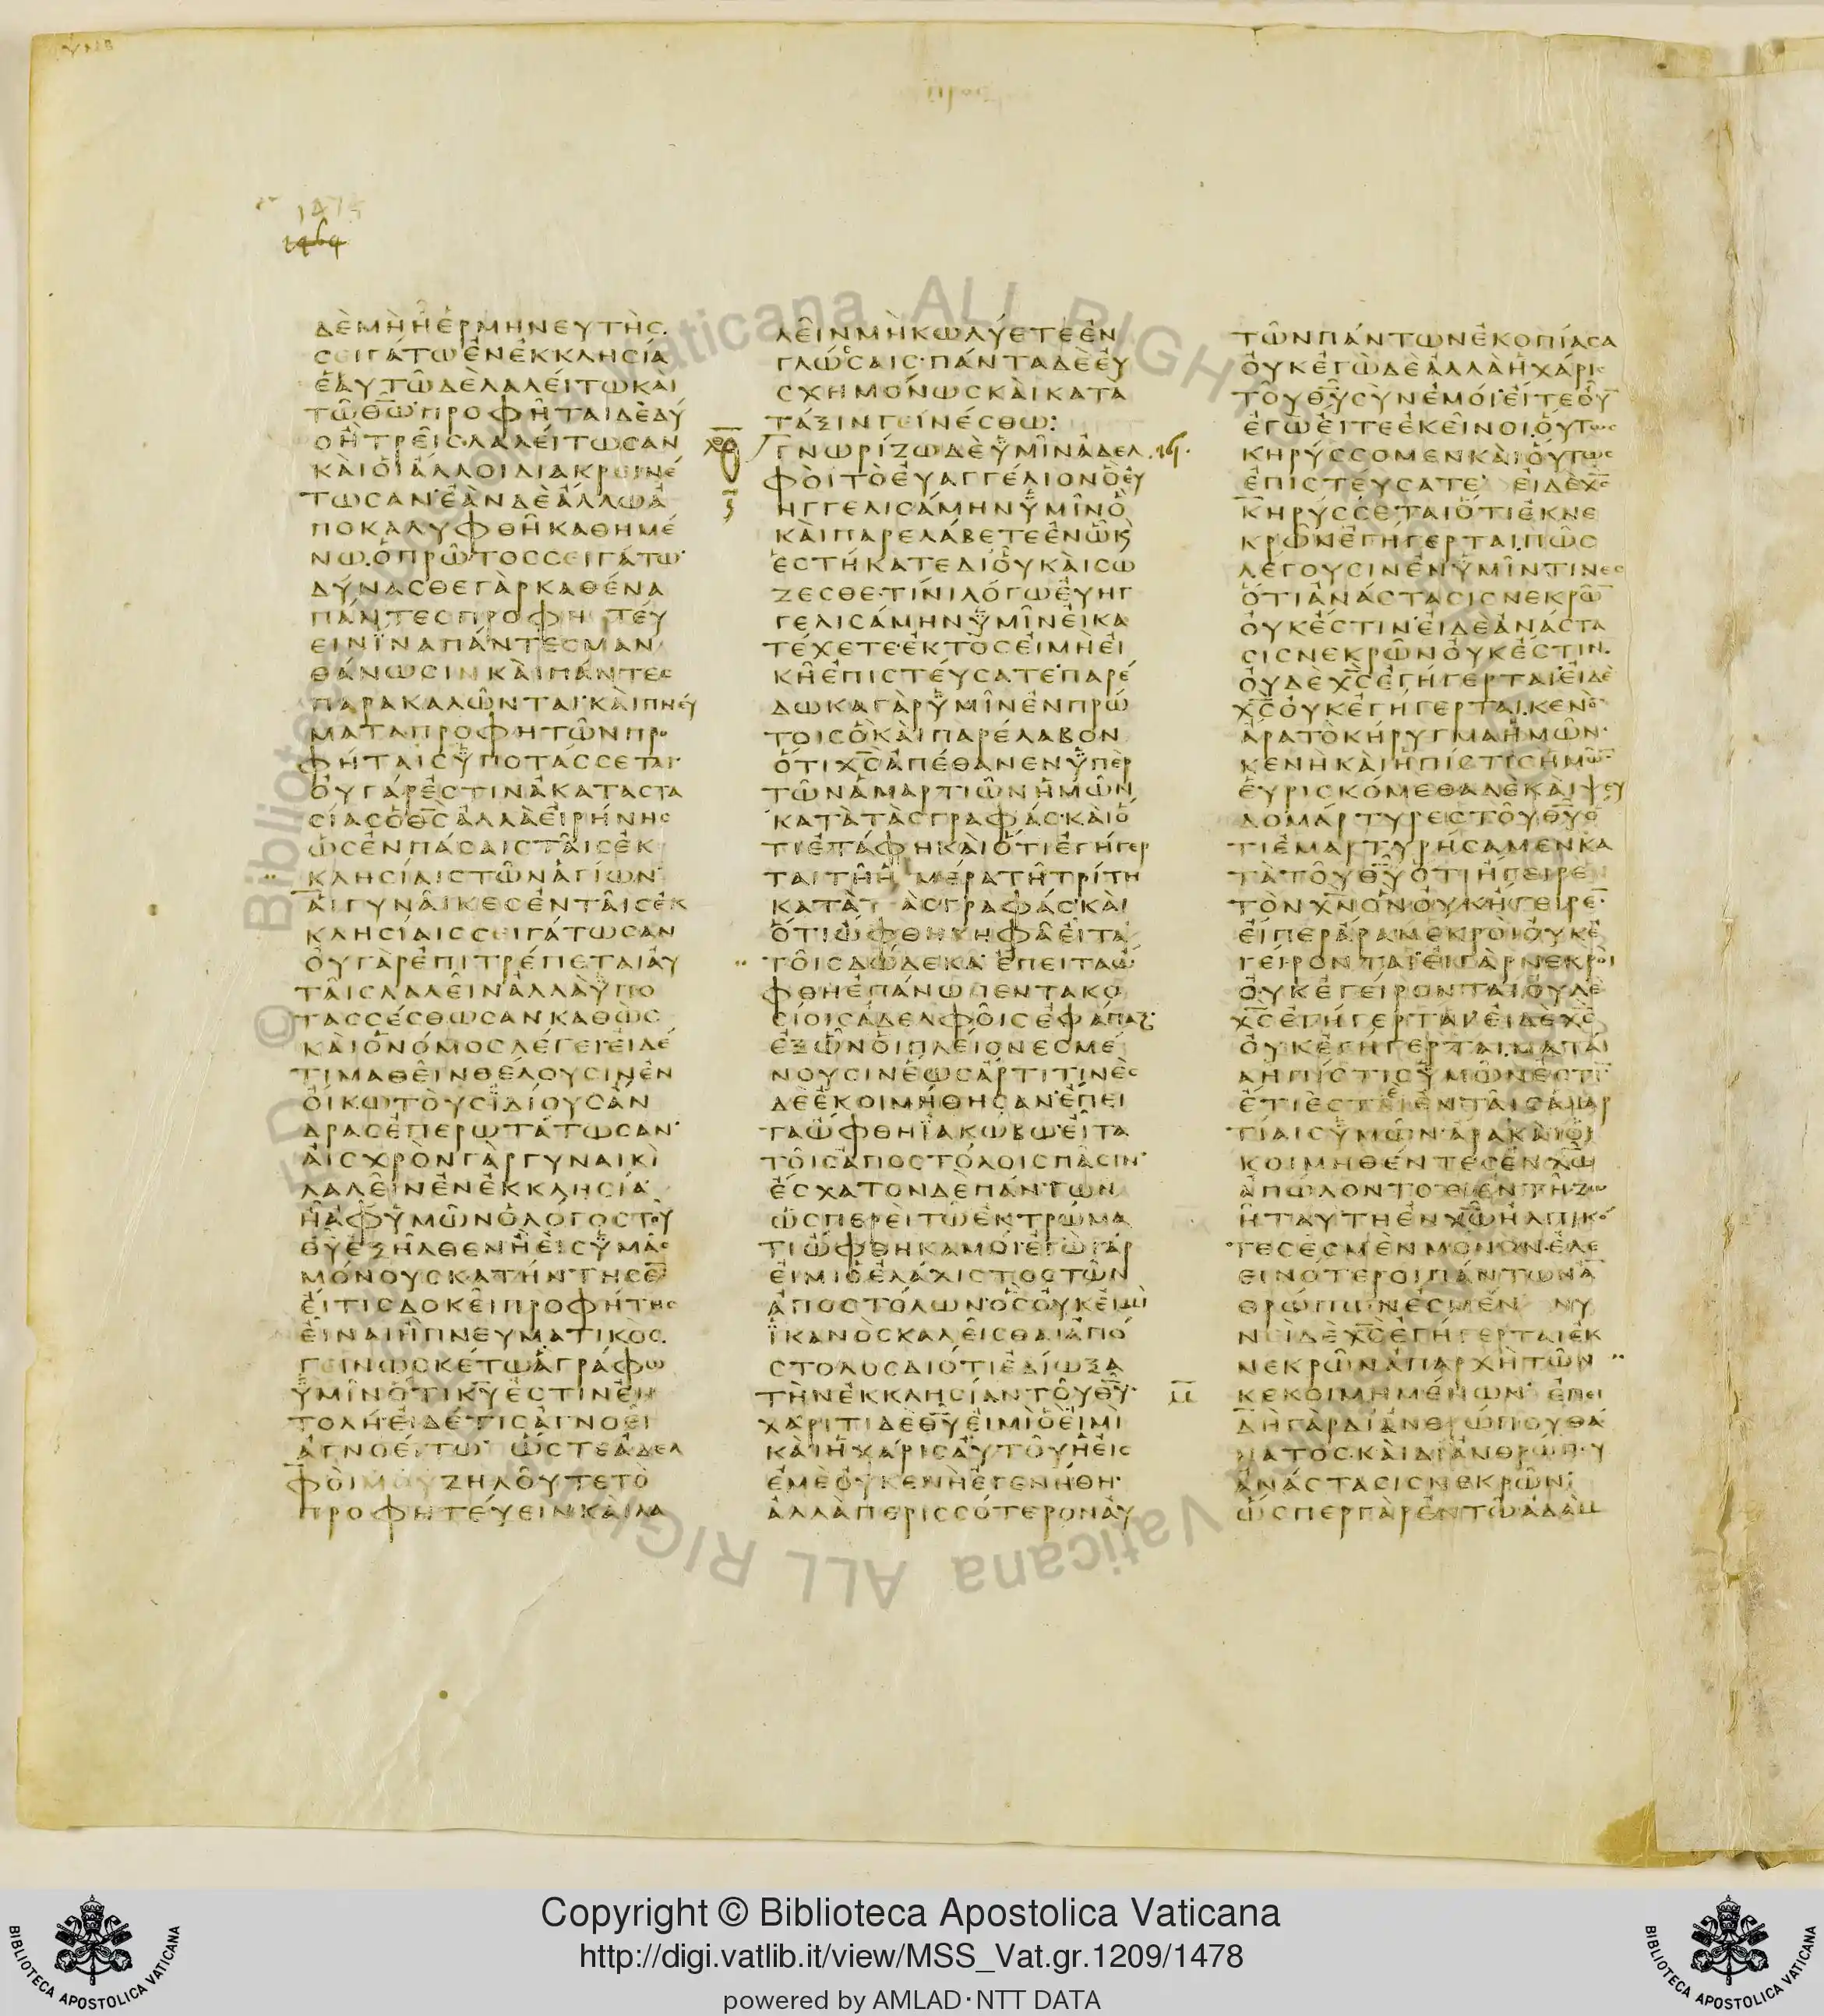 1474
1469
ΔΕΜΗΗΕΡΜΗΝΕΥΤΗC
CΕΙΓΑΤΩΕΝΕΚΚΛΗCΙΑ
ΕΑΥΤΩΔΕΛΑΛΕΙΤΩΚΑΙ
ΤΩΘΩΠΡΟΦΗΤΑΙΔΕΔΥ
ΟΗΤΡΕΙCΛΑΛΕΙΤΩCΑΝ
ΚΑΙΟΙΑΛΛΟΙΔΙΑΚΡΕΙΝΕ
ΤΩCΑΝΕΑΝΔΕΑΛΛΩΑ
ΠΟΚΑΛΥΦΘΗΚΑΘΗΜΕ
ΝΩΟΠΡΩΤΟCCΕΙΓΑΤΩ
ΔΥΝΑCΘΕΓΑΡΚΑΘΕΝΑ
ΠΑΝΤΕCΠΡΟΦΗΤΕΥ
ΕΙΝΪΝΑΠΑΝΤΕCΜΑΝ
ΘΑΝΩCΙΝΚΑΙΠΑΝΤΕC
ΠΑΡΑΚΑΛΩΝΤΑΙΚΑΙΠΝΕΥ
ΜΑΤΑΠΡΟΦΗΤΩΝΠΡΟ
ΦΗΤΑΙCΫΠΟΤΑCCΕΤΑΙ
ΟΥΓΑΡΕCΤΙΝΑΚΑΤΑCΤΑ
CΙΑCΟΘCΑΛΛΑΕΙΡΗΝΗC
ΩCΕΝΠΑCΑΙCΤΑΙCΕΚ
ΚΛΗCΙΑΙCΤΩΝΑΓΙΩΝ
ΑΙΓΥΝΑΙΚΕCΕΝΤΑΙCΕΚ
ΚΛΗCΙΑΙCCΕΙΓΑΤΩCΑΝ
ΟΥΓΑΡΕΠΙΤΡΕΠΕΤΑΙΑΥ
ΤΑΙCΛΑΛΕΙΝΑΛΛΑΫΠΟ
ΤΑCCΕCΘΩCΑΝΚΑΘΩC
ΚΑΙΟΝΟΜΟCΛΕΓΕΙΕΙΔΕ
ΤΙΜΑΘΕΙΝΘΕΛΟΥCΙΝΕΝ
ΟΙΚΩΤΟΥCΪΔΙΟΥCΑΝ
ΔΡΑCΕΠΕΡΩΤΑΤΩCΑΝ
ΑΙCΧΡΟΝΓΑΡΓΥΝΑΙΚΙ
ΛΑΛΕΙΝΕΝΕΚΚΛΗCΙΑ
ΗΑΦΫΜΩΝΟΛΟΓΟCΤΟΥ
ΘΥΕΞΗΛΘΕΝΗΕΙCΫΜΑC
ΜΟΝΟΥCΚΑΤΗΝΤΗCΕ̅
ΕΙΤΙCΔΟΚΕΙΠΡΟΦΗΤΗC
ΕΙΝΑΙΗΠΝΕΥΜΑΤΙΚΟC
ΓΕΙΝΩCΚΕΤΩΑΓΡΑΦΩ
ΫΜΙΝΟΤΙΚΥΕCΤΙΝΕΝ
ΤΟΛΗΕΙΔΕΤΙCΑΓΝΟΕΙ
ΑΓΝΟΕΙΤΩΩCΤΕΑΔΕΛ
ΦΟΙΜΟΥΖΗΛΟΥΤΕΤΟ
ΠΡΟΦΗΤΕΥΕΙΝΚΑΙΛΑ
ΛΕΙΝΜΗΚΩΛΥΕΤΕΕΝ
ΓΛΩCCΑΙCΠΑΝΤΑΔΕΕΥ
CΧΗΜΟΝΩCΚΑΙΚΑΤΑ
ΤΑΞΙΝΓΕΙΝΕCΘΩ
ΓΝΩΡΙΖΩΔΕΫΜΙΝΑΔΕΛ
ΦΟΙΤΟΕΥΑΓΓΕΛΙΟΝΟΕΥ
ΗΓΓΕΛΙCΑΜΗΝΫΜΙΝΟ
ΚΑΙΠΑΡΕΛΑΒΕΤΕΕΝΩϏ
ΕCΤΗΚΑΤΕΔΙΟΥΚΑΙCΩ
ΖΕCΘΕΤΙΝΙΛΟΓΩΕΥΗΓ
ΓΕΛΙCΑΜΗΝΫΜΙΝΕΙΚΑ
ΤΕΧΕΤΕΕΚΤΟCΕΙΜΗΕΙ
ΚΗΕΠΙCΤΕΥCΑΤΕΠΑΡΕ
ΔΩΚΑΓΑΡΫΜΙΝΕΝΠΡΩ
ΤΟΙCΟΚΑΙΠΑΡΕΛΑΒΟΝ
ΟΤΙΧCΑΠΕΘΑΝΕΝΫΠΕΡ
ΤΩΝΑΜΑΡΤΙΩΝΗΜΩΝ
ΚΑΤΑΤΑCΓΡΑΦΑCΚΑΙΟ
ΤΙΕΤΑΦΗΚΑΙΟΤΙΕΓΗΓΕΡ
ΤΑΙΤΗΗΜΕΡΑΤΗΤΡΙΤΗ
ΚΑΤΑΤΑCΓΡΑΦΑCΚΑΙ
ΟΤΙΩΦΘΗΚΗΦΑΕΙΤΑ
ΤΟΙCΔΩΔΕΚΑΕΠΕΙΤΑΩ
ΦΘΗΕΠΑΝΩΠΕΝΤΑΚΟ
CΙΟΙCΑΔΕΛΦΟΙCΕΦΑΠΑΞ
ΕΞΩΝΟΙΠΛΕΙΟΝΕCΜΕ
ΝΟΥCΙΝΕΩCΑΡΤΙΤΙΝΕC
ΔΕΕΚΟΙΜΗΘΗCΑΝΕΠΕΙ
ΤΑΩΦΘΗΪΑΚΩΒΩΕΙΤΑ
ΤΟΙCΑΠΟCΤΟΛΟΙCΠΑCΙΝ
ΕCΧΑΤΟΝΔΕΠΑΝΤΩΝ
ΩCΠΕΡΕΙΤΩΕΚΤΡΩΜΑ
ΤΙΩΦΘΗΚΑΜΟΙΕΓΩΓΑΡ
ΕΙΜΙΟΕΛΑΧΙCΤΟCΤΩΝ
ΑΠΟCΤΟΛΩΝΟCΟΥΚΕΙΜΙ
ΪΚΑΝΟCΚΑΛΕΙCΘΑΙΑΠΟ
CΤΟΛΟCΔΙΟΤΙΕΔΙΩΞΑ
ΤΗΝΕΚΚΛΗCΙΑΝΤΟΥΘΥ
ΧΑΡΙΤΙΔΕΘΥΕΙΜΙΟΕΙΜΙ
ΚΑΙΗΧΑΡΙCΑΥΤΟΥΗΕΙC
ΕΜΕΟΥΚΕΝΗΕΓΕΝΗΘΗ
ΑΛΛΑΠΕΡΙCCΟΤΕΡΟΝΑΥ
ΤΩΝΠΑΝΤΩΝΕΚΟΠΙΑCΑ
ΟΥΚΕΓΩΔΕΑΛΛΑΗΧΑΡΙC
ΤΟΥΘΥCΥΝΕΜΟΙΕΙΤΕΟΥ̅
ΕΓΩΕΙΤΕΕΚΕΙΝΟΙΟΥΤΩC
ΚΗΡΥCCΟΜΕΝΚΑΙΟΥΤΩC
ΕΠΙCΤΕΥCΑΤΕΕΙΔΕΧC
ΚΗΡΥCCΕΤΑΙΟΤΙΕΚΝΕ
ΚΡΩΝΕΓΗΓΕΡΤΑΙΠΩC
ΛΕΓΟΥCΙΝΕΝΫΜΙΝΤΙΝΕC
ΟΤΙΑΝΑCΤΑCΙCΝΕΚΡΩ̅
ΟΥΚΕCΤΙΝΕΙΔΕΑΝΑCΤΑ
CΙCΝΕΚΡΩΝΟΥΚΕCΤΙΝ
ΟΥΔΕΧCΕΓΗΓΕΡΤΑΙΕΙΔΕ
ΧCΟΥΚΕΓΗΓΕΡΤΑΙΚΕΝΟ
ΑΡΑΤΟΚΗΡΥΓΜΑΗΜΩΝ
ΚΕΝΗΚΑΙΗΠΙCΤΙCΗΜΩ̅
ΕΥΡΙCΚΟΜΕΘΑΔΕΚΑΙΨΕΥ
ΔΟΜΑΡΤΥΡΕCΤΟΥΘΥΟ
ΤΙΕΜΑΡΤΥΡΗCΑΜΕΝΚΑ
ΤΑΤΟΥΘΥΟΤΙΗΓΕΙΡΕ
ΤΟΝΧΝΟΝΟΥΚΗΓΕΙΡΕ̅
ΕΙΠΕΡΑΡΑΝΕΚΡΟΙΟΥΚΕ
ΓΕΙΡΟΝΤΑΙΕΙΓΑΡΝΕΚΡΟΙ
ΟΥΚΕΓΕΙΡΟΝΤΑΙΟΥΔΕ
ΧCΕΓΗΓΕΡΤΑΙΕΙΔΕΧC
ΟΥΚΕΓΗΓΕΡΤΑΙΜΑΤΑΙ
ΑΗΠΙCΤΙCΫΜΩΝΕCΤΙ̅
ΕΤΙΕCΤΕΕΝΤΑΙCΑΜΑΡ
ΤΙΑΙCΫΜΩΝΑΡΑΚΑΙΟΙ
ΚΟΙΜΗΘΕΝΤΕCΕΝΧΩ
ΑΠΩΛΟΝΤΟΕΙΕΝΤΗΖΩ
ΗΤΑΥΤΗΕΝΧΩΗΛΠΙΚΟ
ΤΕCΕCΜΕΝΜΟΝΟΝΕΛΕ
ΕΙΝΟΤΕΡΟΙΠΑΝΤΩΝΑ̅
ΘΡΩΠΩΝΕCΜΕΝΝΥ
ΝΕΙΔΕΧCΕΓΗΓΕΡΤΑΙΕΚ
ΝΕΚΡΩΝΑΠΑΡΧΗΤΩΝ
ΚΕΚΟΙΜΗΜΕΝΩΝΕΠΕΙ
ΔΗΓΑΡΔΙΑΝΘΡΩΠΟΥΘΑ
ΝΑΤΟCΚΑΙΔΙΑΝΘΡΩΠΟΥ
ΑΝΑCΤΑCΙCΝΕΚΡΩΝ
ΩCΠΕΡΓΑΡΕΝΤΩΑΔΑΜ
Copyright © Biblioteca Apostolica Vaticana
http://digi.vatlib.it/view/MSS_Vat.gr.1209/1478
powered by AMLAD·NTT DATA
BIBLIOTECA APOSTOLICA VATICANA
BIBLIOTECA APOSTOLICA VATICANA